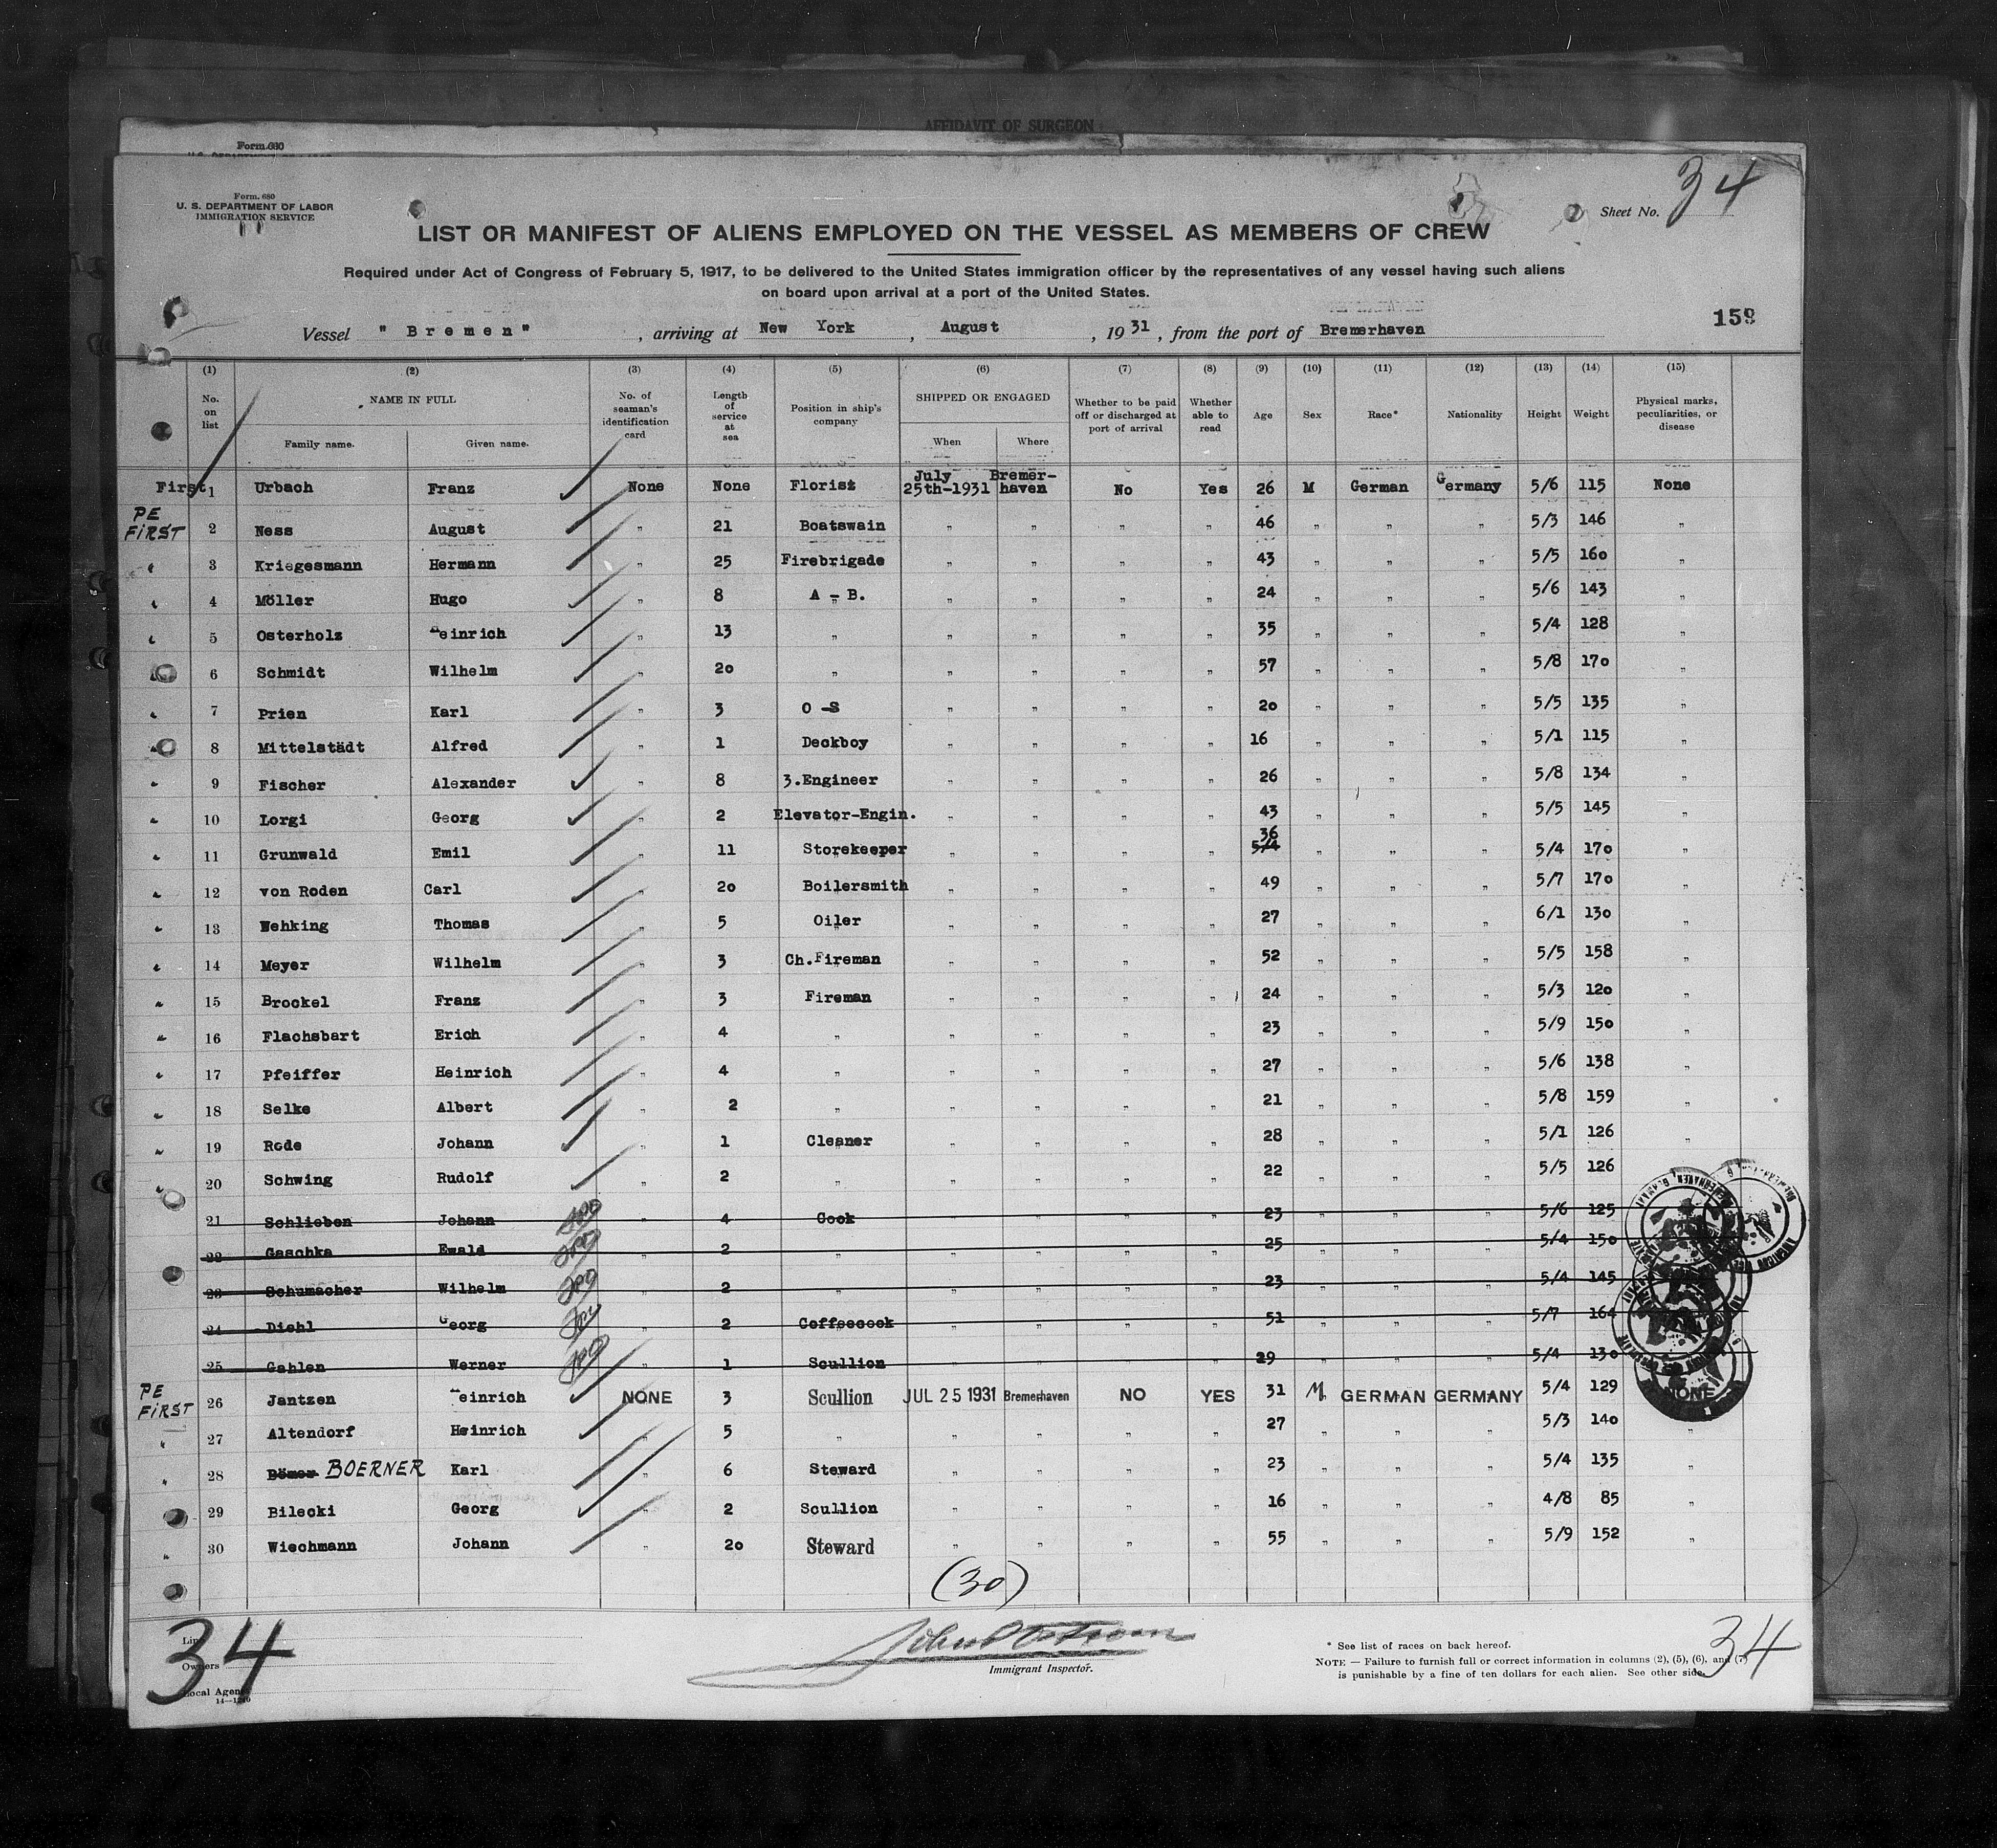 AFFIDAVIT OF SURGEON
Form 680
Form 680
U. S. DEPARTMENT OF LABOR
IMMIGRATION SERVICE
Sheet No. 34
LIST OR MANIFEST OF ALIENS EMPLOYED ON THE VESSEL AS MEMBERS OF CREW
Required under Act of Congress of February 5, 1917, to be delivered to the United States immigration officer by the representatives of any vessel having such aliens
on board upon arrival at a port of the United States.
159
Vessel " Bremen " , arriving at New York , August , 19 31 , from the port of Bremerhaven
(1) (2) (3) (4) (5) (6) (7) (8) (9) (10) (11) (12) (13) (14) (15)
No. on list NAME IN FULL Family name. Given name. No. of seaman's identification card Length of service at sea Position in ship's company SHIPPED OR ENGAGED When Where Whether to be paid off or discharged at port of arrival Whether able to read Age Sex Race* Nationality Height Weight Physical marks, peculiarities, or disease
First 1 Urbach Franz None None Florist July 25th-1931 Bremer-haven No Yes 26 M German Germany 5/6 115 None
PE FIRST 2 Ness August " 21 Boatswain " " " " 46 " " " 5/3 146 "
" 3 Kriegesmann Hermann " 25 Firebrigade " " " " 43 " " " 5/5 160 "
" 4 Möller Hugo " 8 A - B. " " " " 24 " " " 5/6 143 "
" 5 Osterholz Heinrich " 13 " " " " " 35 " " " 5/4 128 "
" 6 Schmidt Wilhelm " 20 " " " " " 57 " " " 5/8 170 "
" 7 Prien Karl " 3 O - S " " " " 20 " " " 5/5 135 "
" 8 Mittelstädt Alfred " 1 Deckboy " " " " 16 " " " 5/1 115 "
" 9 Fischer Alexander " 8 3.Engineer " " " " 26 " " " 5/8 134 "
" 10 Lorgi Georg " 2 Elevator-Engin. " " " " 43 " " " 5/5 145 "
" 11 Grunwald Emil " 11 Storekeeper " " " " 36 5/4 " " " 5/4 170 "
" 12 von Roden Carl " 20 Boilersmith " " " " 49 " " " 5/7 170 "
" 13 Wehking Thomas " 5 Oiler " " " " 27 " " " 6/1 130 "
" 14 Meyer Wilhelm " 3 Ch.Fireman " " " " 52 " " " 5/5 158 "
" 15 Brockel Franz " 3 Fireman " " " " 24 " " " 5/3 120 "
" 16 Flachsbart Erich " 4 " " " " " 23 " " " 5/9 150 "
" 17 Pfeiffer Heinrich " 4 " " " " " 27 " " " 5/6 138 "
" 18 Selke Albert " 2 " " " " " 21 " " " 5/8 159 "
" 19 Rode Johann " 1 Cleaner " " " " 28 " " " 5/1 126 "
" 20 Schwing Rudolf " 2 " " " " " 22 " " " 5/5 126
21 Schlieben Johann " 4 Cook " " " " 23 " " " 5/6 125
22 Gaschka Ewald " 2 " " " " " 25 " " " 5/4 150
23 Schumacher Wilhelm " 2 " " " " " 23 " " " 5/4 145
24 Diehl Georg " 2 Coffeecook " " " " 51 " " " 5/7 164
25 Gahlen Werner " 1 Scullion " " " " 29 " " " 5/4 130
PE FIRST 26 Jantzen Heinrich NONE 3 Scullion JUL 25 1931 Bremerhaven NO YES 31 M GERMAN GERMANY 5/4 129 NONE
" 27 Altendorf Heinrich " 5 " " " " " 27 " " " 5/3 140 "
" 28 Bömer BOERNER Karl " 6 Steward " " " " 23 " " " 5/4 135 "
" 29 Bilecki Georg " 2 Scullion " " " " 16 " " " 4/8 85 "
" 30 Wiechmann Johann " 20 Steward " " " " 55 " " " 5/9 152 "
(30)
34
Owners
Local Agents
14—1240
Immigrant Inspector.
* See list of races on back hereof.
NOTE — Failure to furnish full or correct information in columns (2), (5), (6), and (7)
is punishable by a fine of ten dollars for each alien. See other side.
34